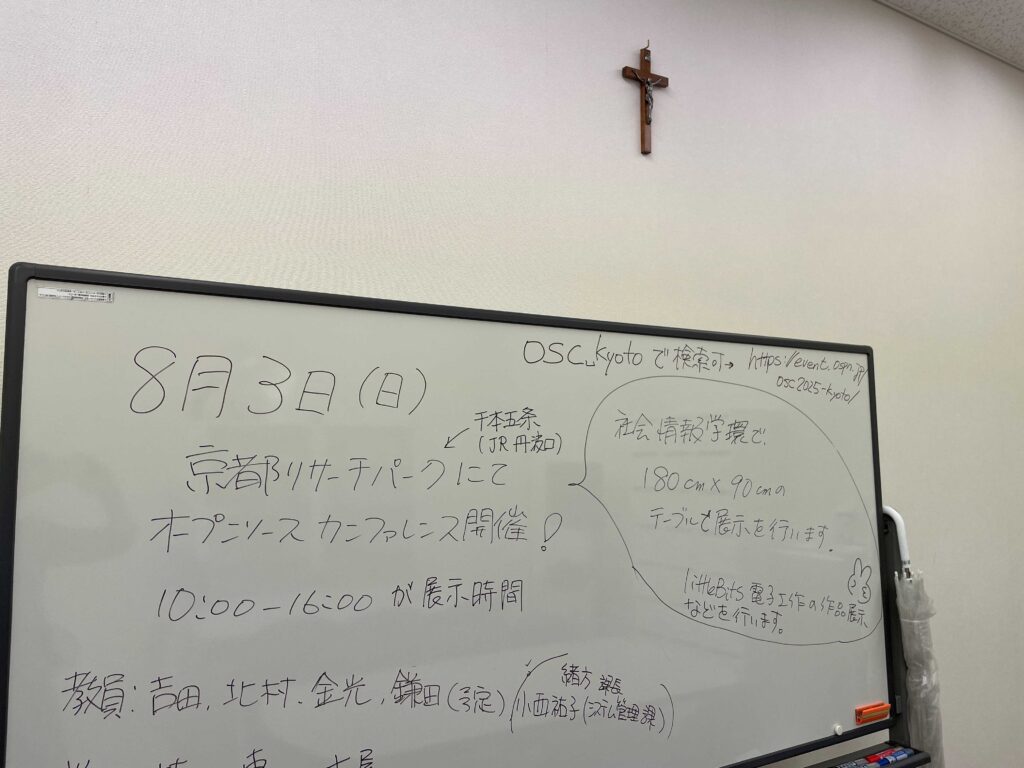 8月3日(日)
千本五条
(JR丹波口)
京都リサーチパークにて
オープンソースカンファレンス開催!
10:00-16:00 が展示時間
OSC␣kyoto で検索可→ https://event.ospn.jp/
osc2025-kyoto/
社会情報学環で、
180cm×90cmの
テーブルで展示を行います。
littleBits 電子工作の作品展示
などを行います。
教員:吉田,北村,金光,鎌田(予定)
緒方 課長
小西祐子(システム管理課)